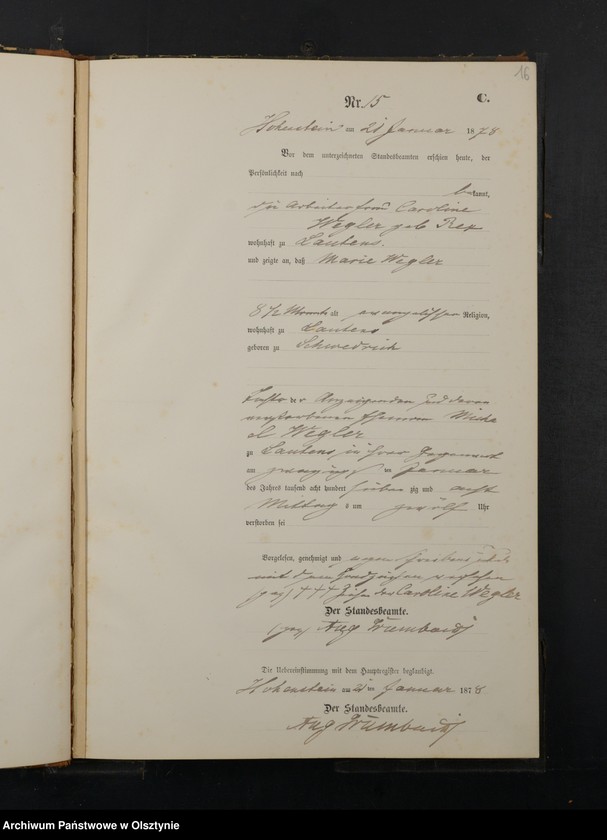 16
Nr. 15 C.
Hohenstein am 21 Januar 1878
Vor dem unterzeichneten Standesbeamten erschien heute, der
Persönlichkeit nach
bekannt,
die Arbeiterfrau Caroline
Wegler geb Rex
wohnhaft zu Lautens.
und zeigte an, daß Marie Wegler
8 1/2 Monate alt evangelischer Religion,
wohnhaft zu Lautens
geboren zu Schwedrich
Tochter der Anzeigenden und deren
verstorbenen Ehemann Micha
el Wegler
zu Lautens in ihrer Gegenwart
am zwanzigsten Januar
des Jahres tausend acht hundert siebenzig und acht
Mittags um zwölf Uhr
verstorben sei
Vorgelesen, genehmigt und wegen
mit dem Handzeichen versehen
(gez) +++ Zeichen der Caroline Wegler
Der Standesbeamte.
(gez) Aug
Die Uebereinstimmung mit dem Hauptregister beglaubigt.
Hohenstein am 21 ten Januar 1878
Der Standesbeamte.
Aug
Archiwum Państwowe w Olsztynie